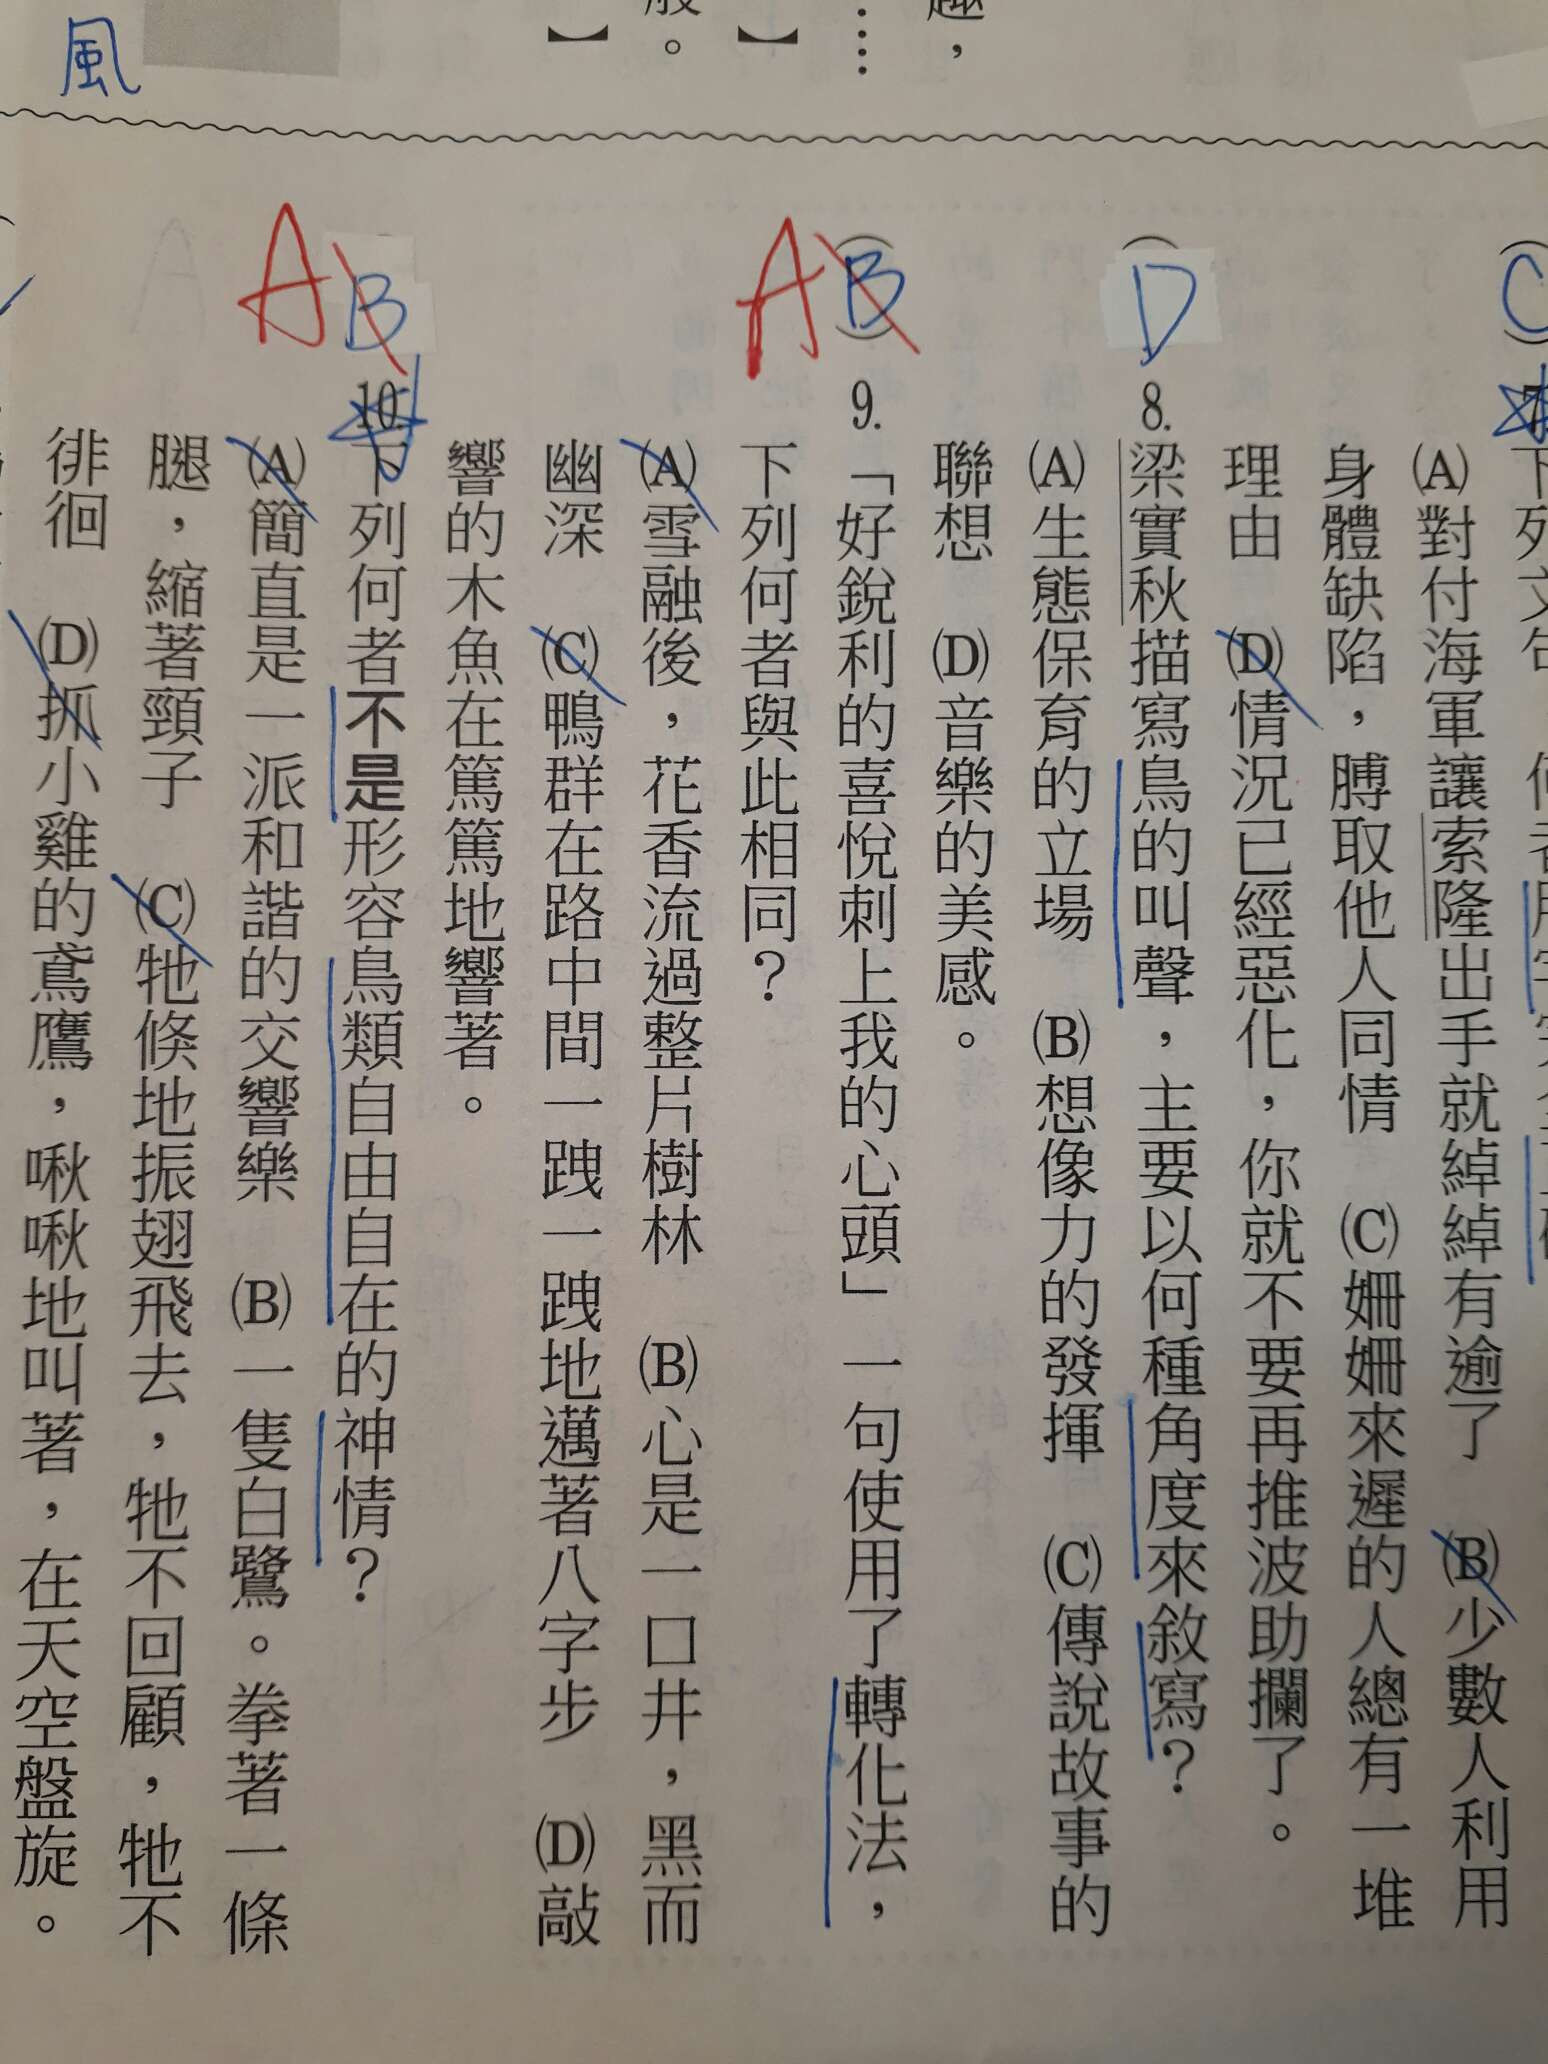 趣，
……
】
般。
】
風
C
7.
下列文句
(A)對付海軍讓索隆出手就綽綽有逾了　(B)少數人利用
身體缺陷，膊取他人同情　(C)姍姍來遲的人總有一堆
理由　(D)情況已經惡化，你就不要再推波助攔了。
D
8.
梁實秋描寫鳥的叫聲，主要以何種角度來敘寫？
(A)生態保育的立場　(B)想像力的發揮　(C)傳說故事的
聯想　(D)音樂的美感。
A B
9.
「好銳利的喜悅刺上我的心頭」一句使用了轉化法，
下列何者與此相同？
(A)雪融後，花香流過整片樹林　(B)心是一口井，黑而
幽深　(C)鴨群在路中間一跩一跩地邁著八字步　(D)敲
響的木魚在篤篤地響著。
A B
10.
下列何者不是形容鳥類自由自在的神情？
(A)簡直是一派和諧的交響樂　(B)一隻白鷺。拳著一條
腿，縮著頸子　(C)牠倏地振翅飛去，牠不回顧，牠不
徘徊　(D)抓小雞的鳶鷹，啾啾地叫著，在天空盤旋。